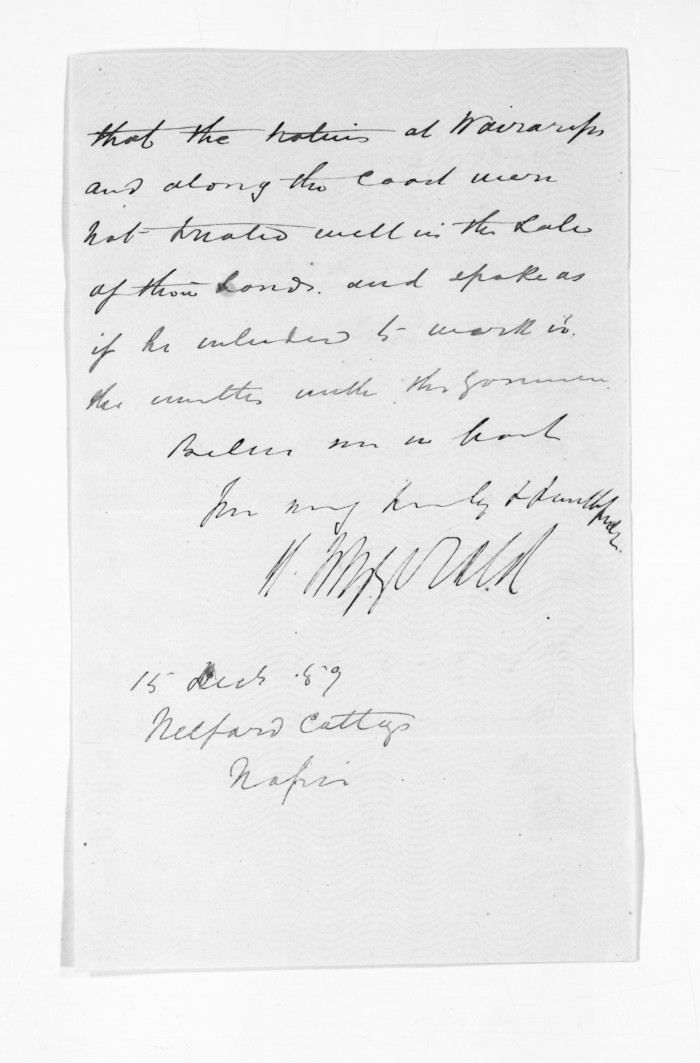 that the natives at Wairarapa
and along the Coast were
not treated well in the Sale
of their Lands. and spoke as
if he intended to work in
the matter with the Governmen
Believe me in haste
Yrs very truly & faithfully
H. Fitzgerald
15 Decb. 59
Cottage
Napier